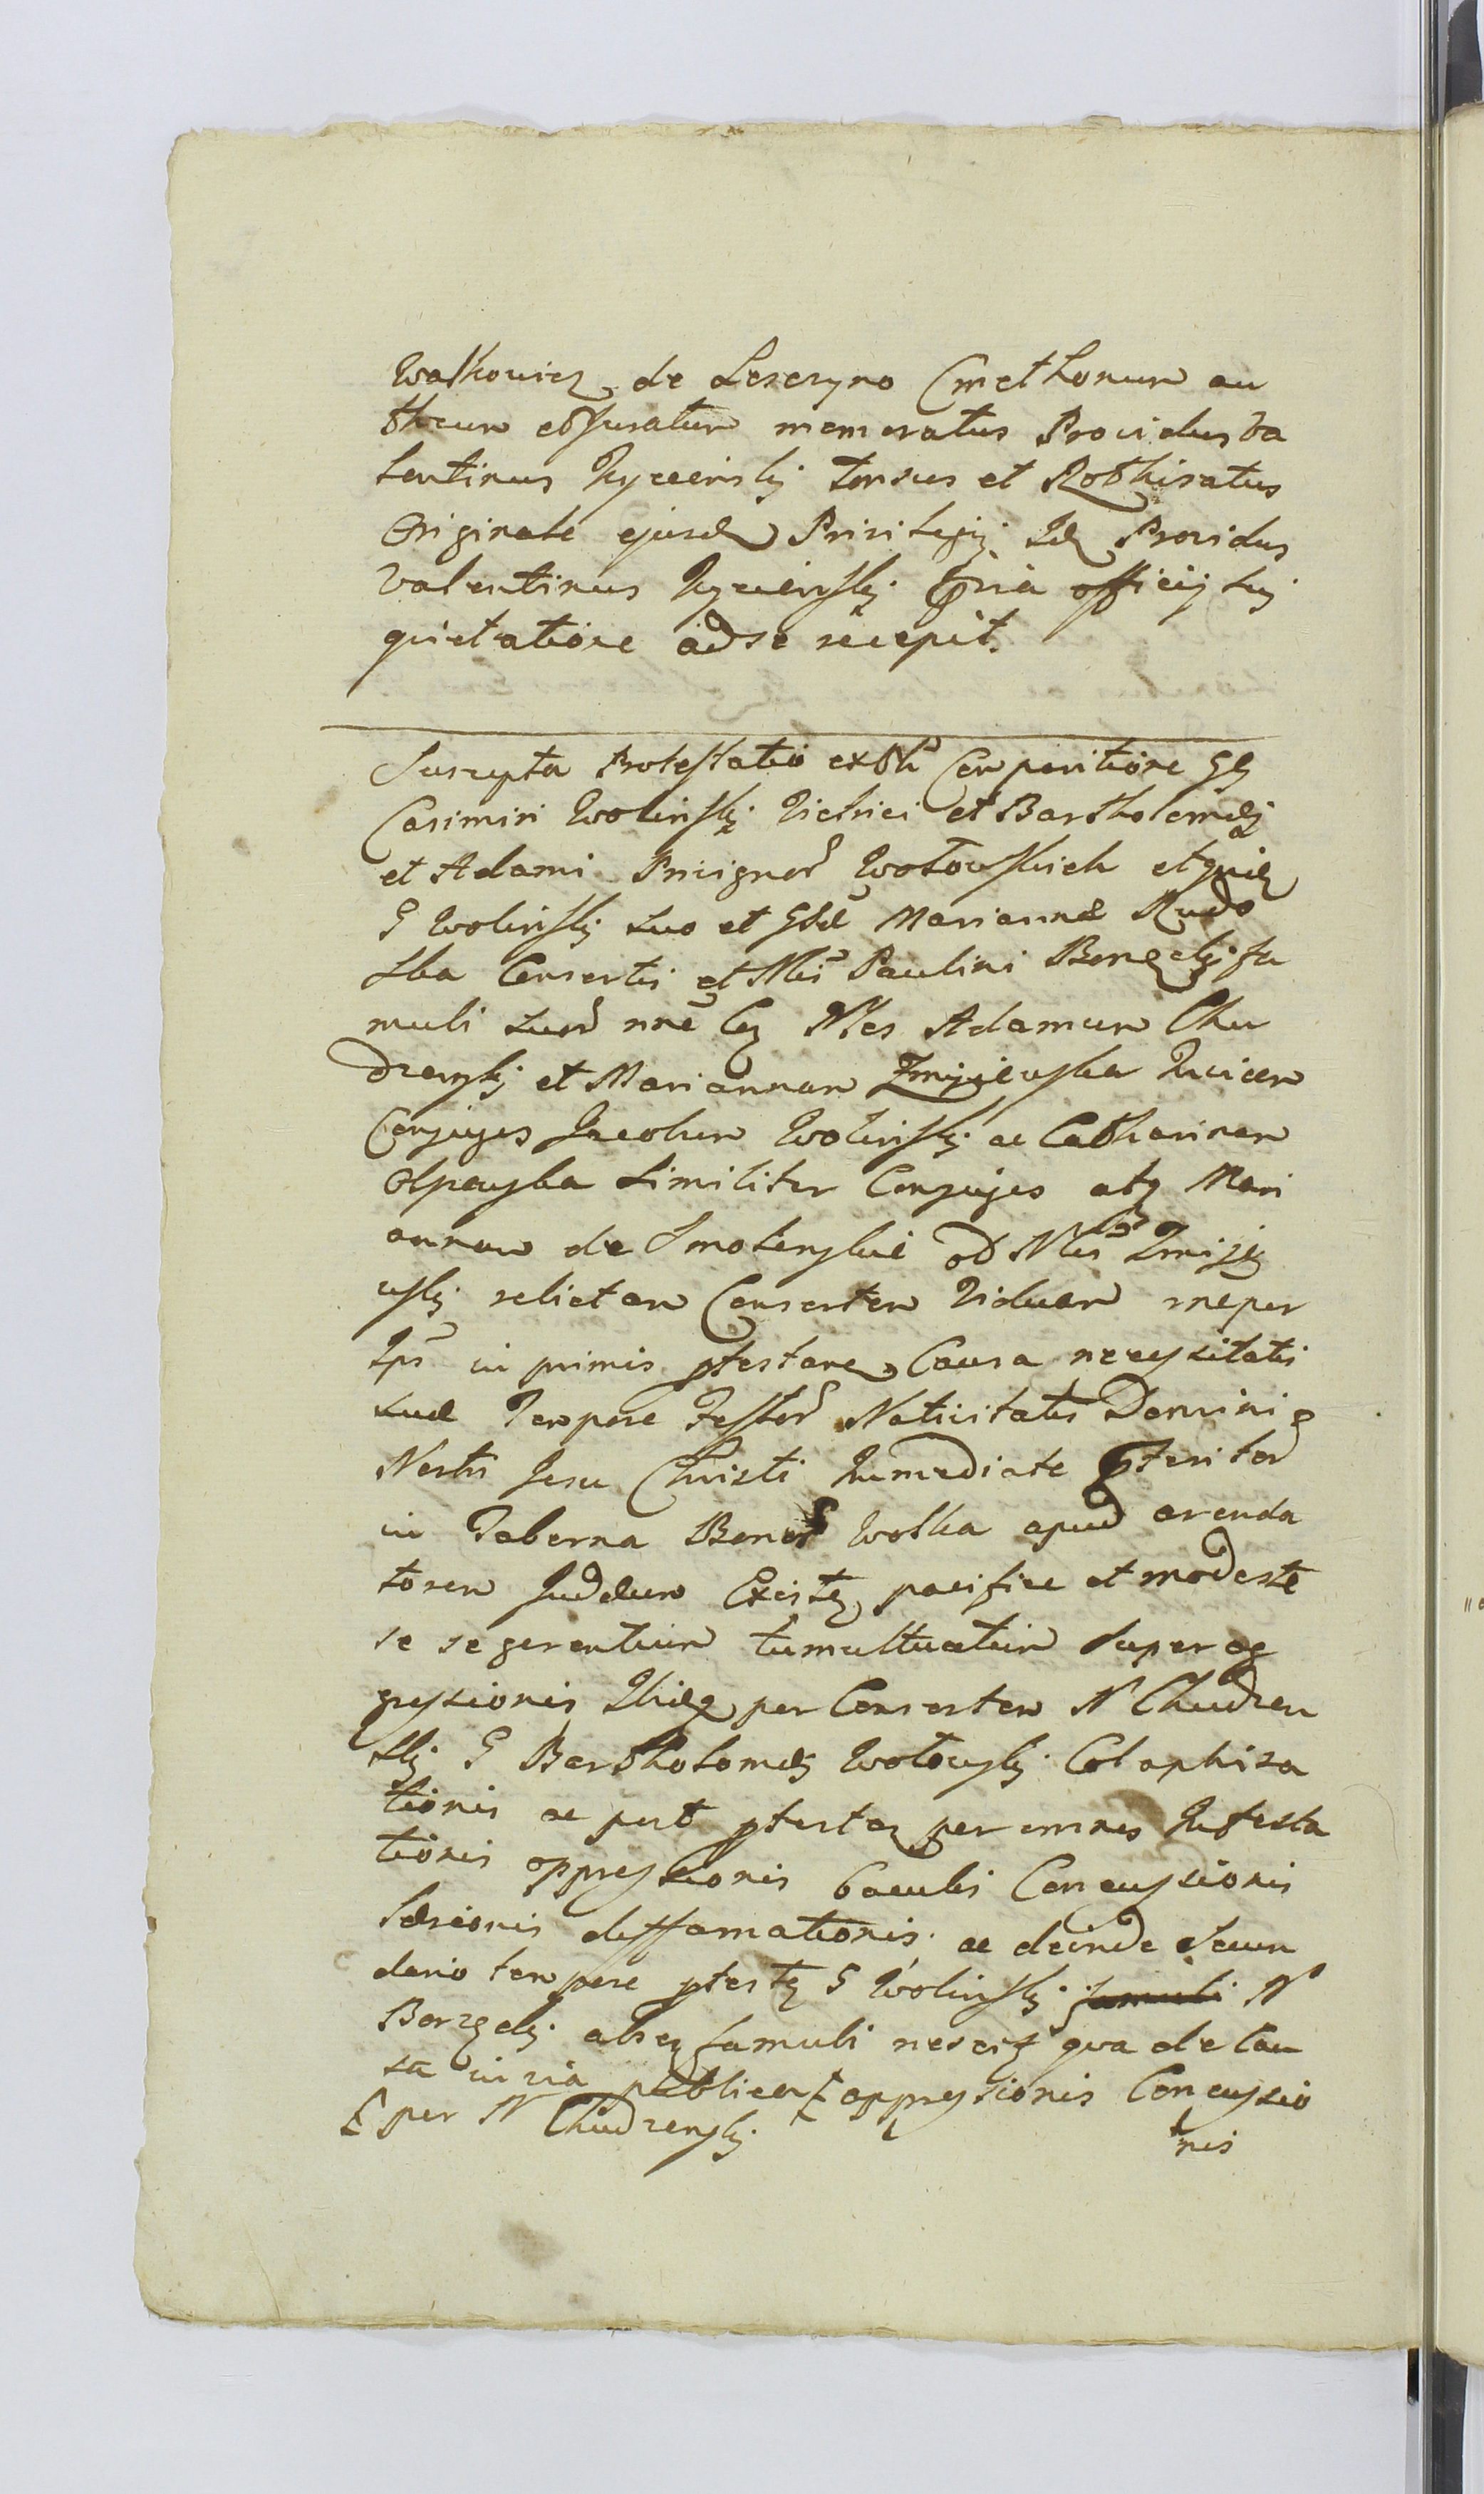 Walkowicz de Leszczyno Cmethonum au
thcum obsuratum memoratus Providus Va
lentinus Kyceinskj tonsus et Rothisatus
Originale ejusd Privilegij Id Providus
Valentinus Kycieinskj pria officij sui
quietatione ad se recepit.
Suscepta Protestatio ex Comparitione GG
Casimiri Wolinskj Victrici et Bartholomæj
et Adami Privignor Wołowskich et quid
G Wolinskj suo et Gsæ Mariannæ Rudo
lska Consortis et Nlis Paulini Borzeckj fa
muli suor nne Co Nles Adamum Chu
drzenskj et Mariannam Zmijewska Invicem
Conjuges Jacobum Wolinskj ac Catharinam
Olpenska similiter Conjuges atq Mari
annam de Smolenskie od Nlis Zmije
wskj relictam Consortem Viduam
Ips in primis ptestans Causa necessitatis
suæ Tempore Festor Nativitatis Domini
Nostri Jesu Christi Immediate pteritor
in Taberna Bonor Wolka apud arenda
torem Judæum Existen pacifice et modeste
se se gerentium tumultuatim super ag
gressionis Ibidq per Consortem N Chudzen
skj G Bartholomæj Wołowskj Colaphiza
tionis ac post ptestan per omnes Infesta
tionis oppressionis baculis Concussionis
læsionis deffamationis ac deinde secun
dario tempore ptestan G Wolinskj famuli N
Borzeckj absq famuli nescit qva de Cau
sa in via publica oppressionis Concussio
per N Chudzenskj
nis